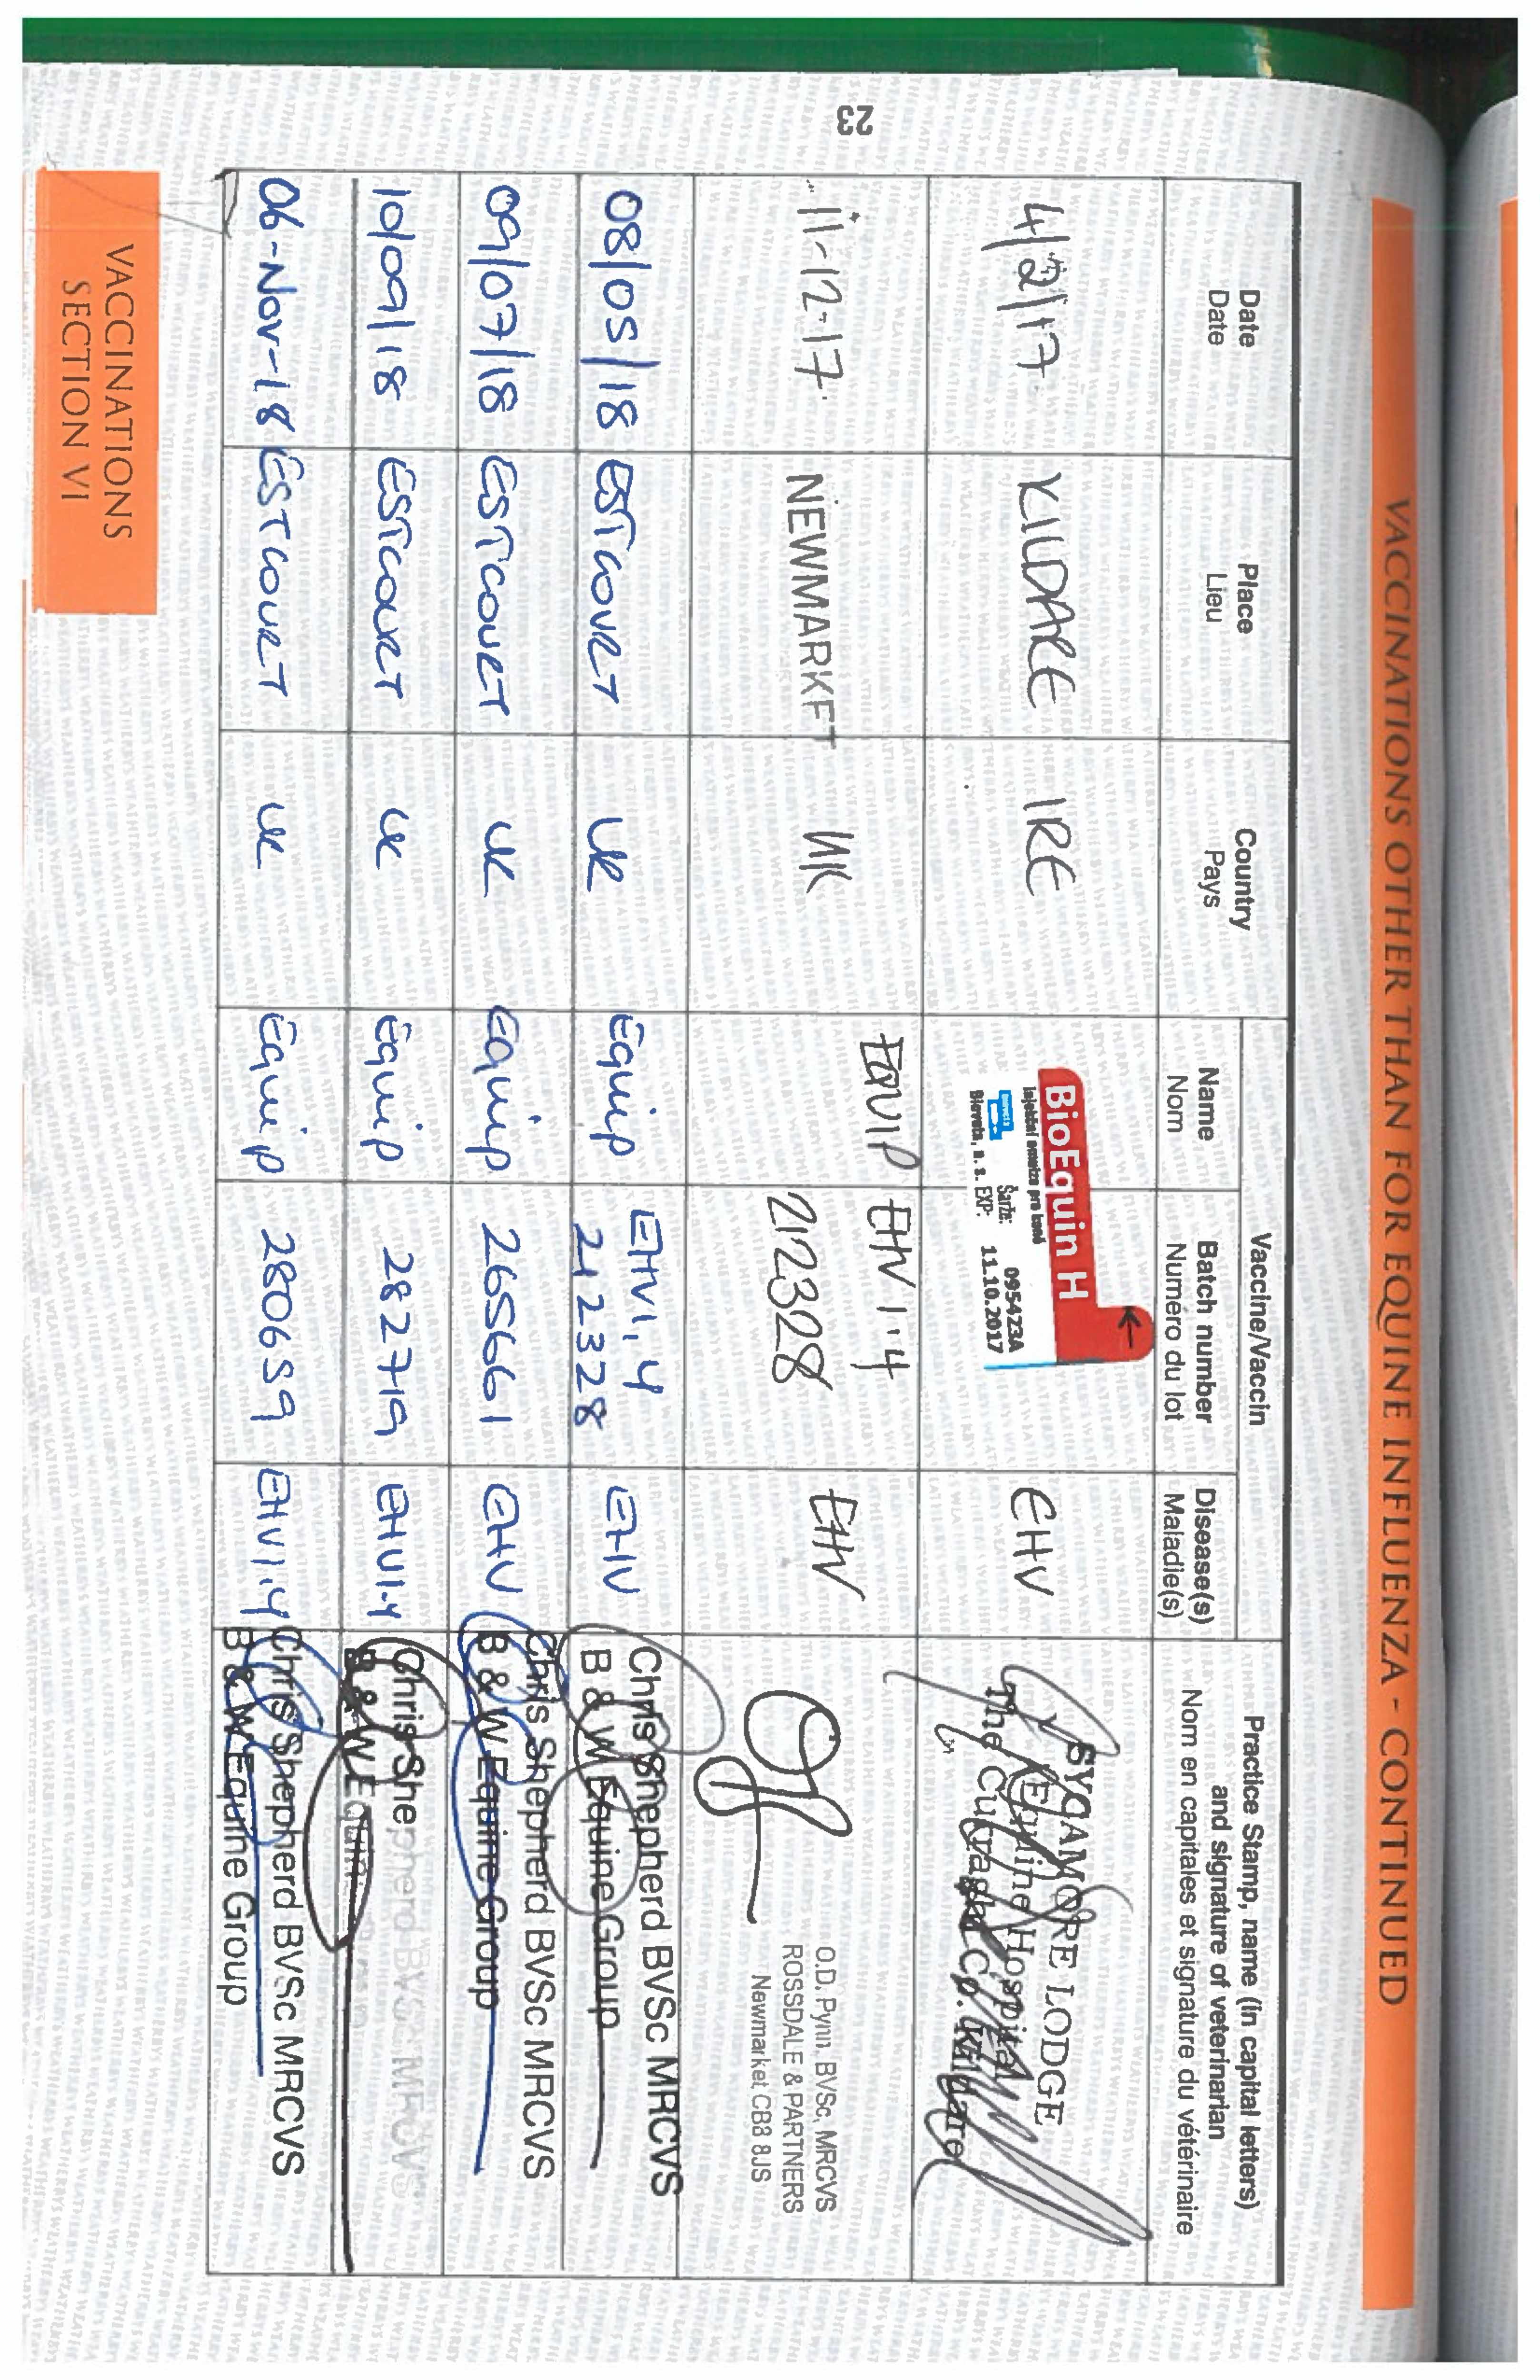 VACCINATIONS OTHER THAN FOR EQUINE INFLUENZA - CONTINUED
Date
Date
Place
Lieu
Country
Pays
Vaccine/Vaccin
Name
Nom
Batch number
Numéro du lot
Disease(s)
Maladie(s)
Practice Stamp, name (in capital letters)
and signature of veterinarian
Nom en capitales et signature du vétérinaire
4/2/17 KILDARE IRE
BioEquin H
Injekční emulze pro koně
Šarže: 095423A
Bioveta, a. s. EXP: 11.10.2017
EHV
SYCAMORE LODGE
Equine Hospital
The Curragh Co. Kildare
11-12-17 NEWMARKET UK EQUIP EHV 1.4
212328
EHV
O.D. Pynn, BVSc, MRCVS
ROSSDALE & PARTNERS
Newmarket CB8 8JS
08/05/18 ESTCOURT UK Equip EHV1,4
212328
EHV
Chris Shepherd BVSc MRCVS
B & W Equine Group
09/07/18 ESTCOURT UK Equip 265661 EHV
Chris Shepherd BVSc MRCVS
B & W Equine Group
10/09/18 ESTCOURT UK Equip 282719 EHV1.4
Chris Shepherd BVSc MRCVS
B & W Equine
06-Nov-18 ESTCOURT UK Equip 280659 EHV1.4
Chris Shepherd BVSc MRCVS
B & W Equine Group
VACCINATIONS
SECTION VI
23